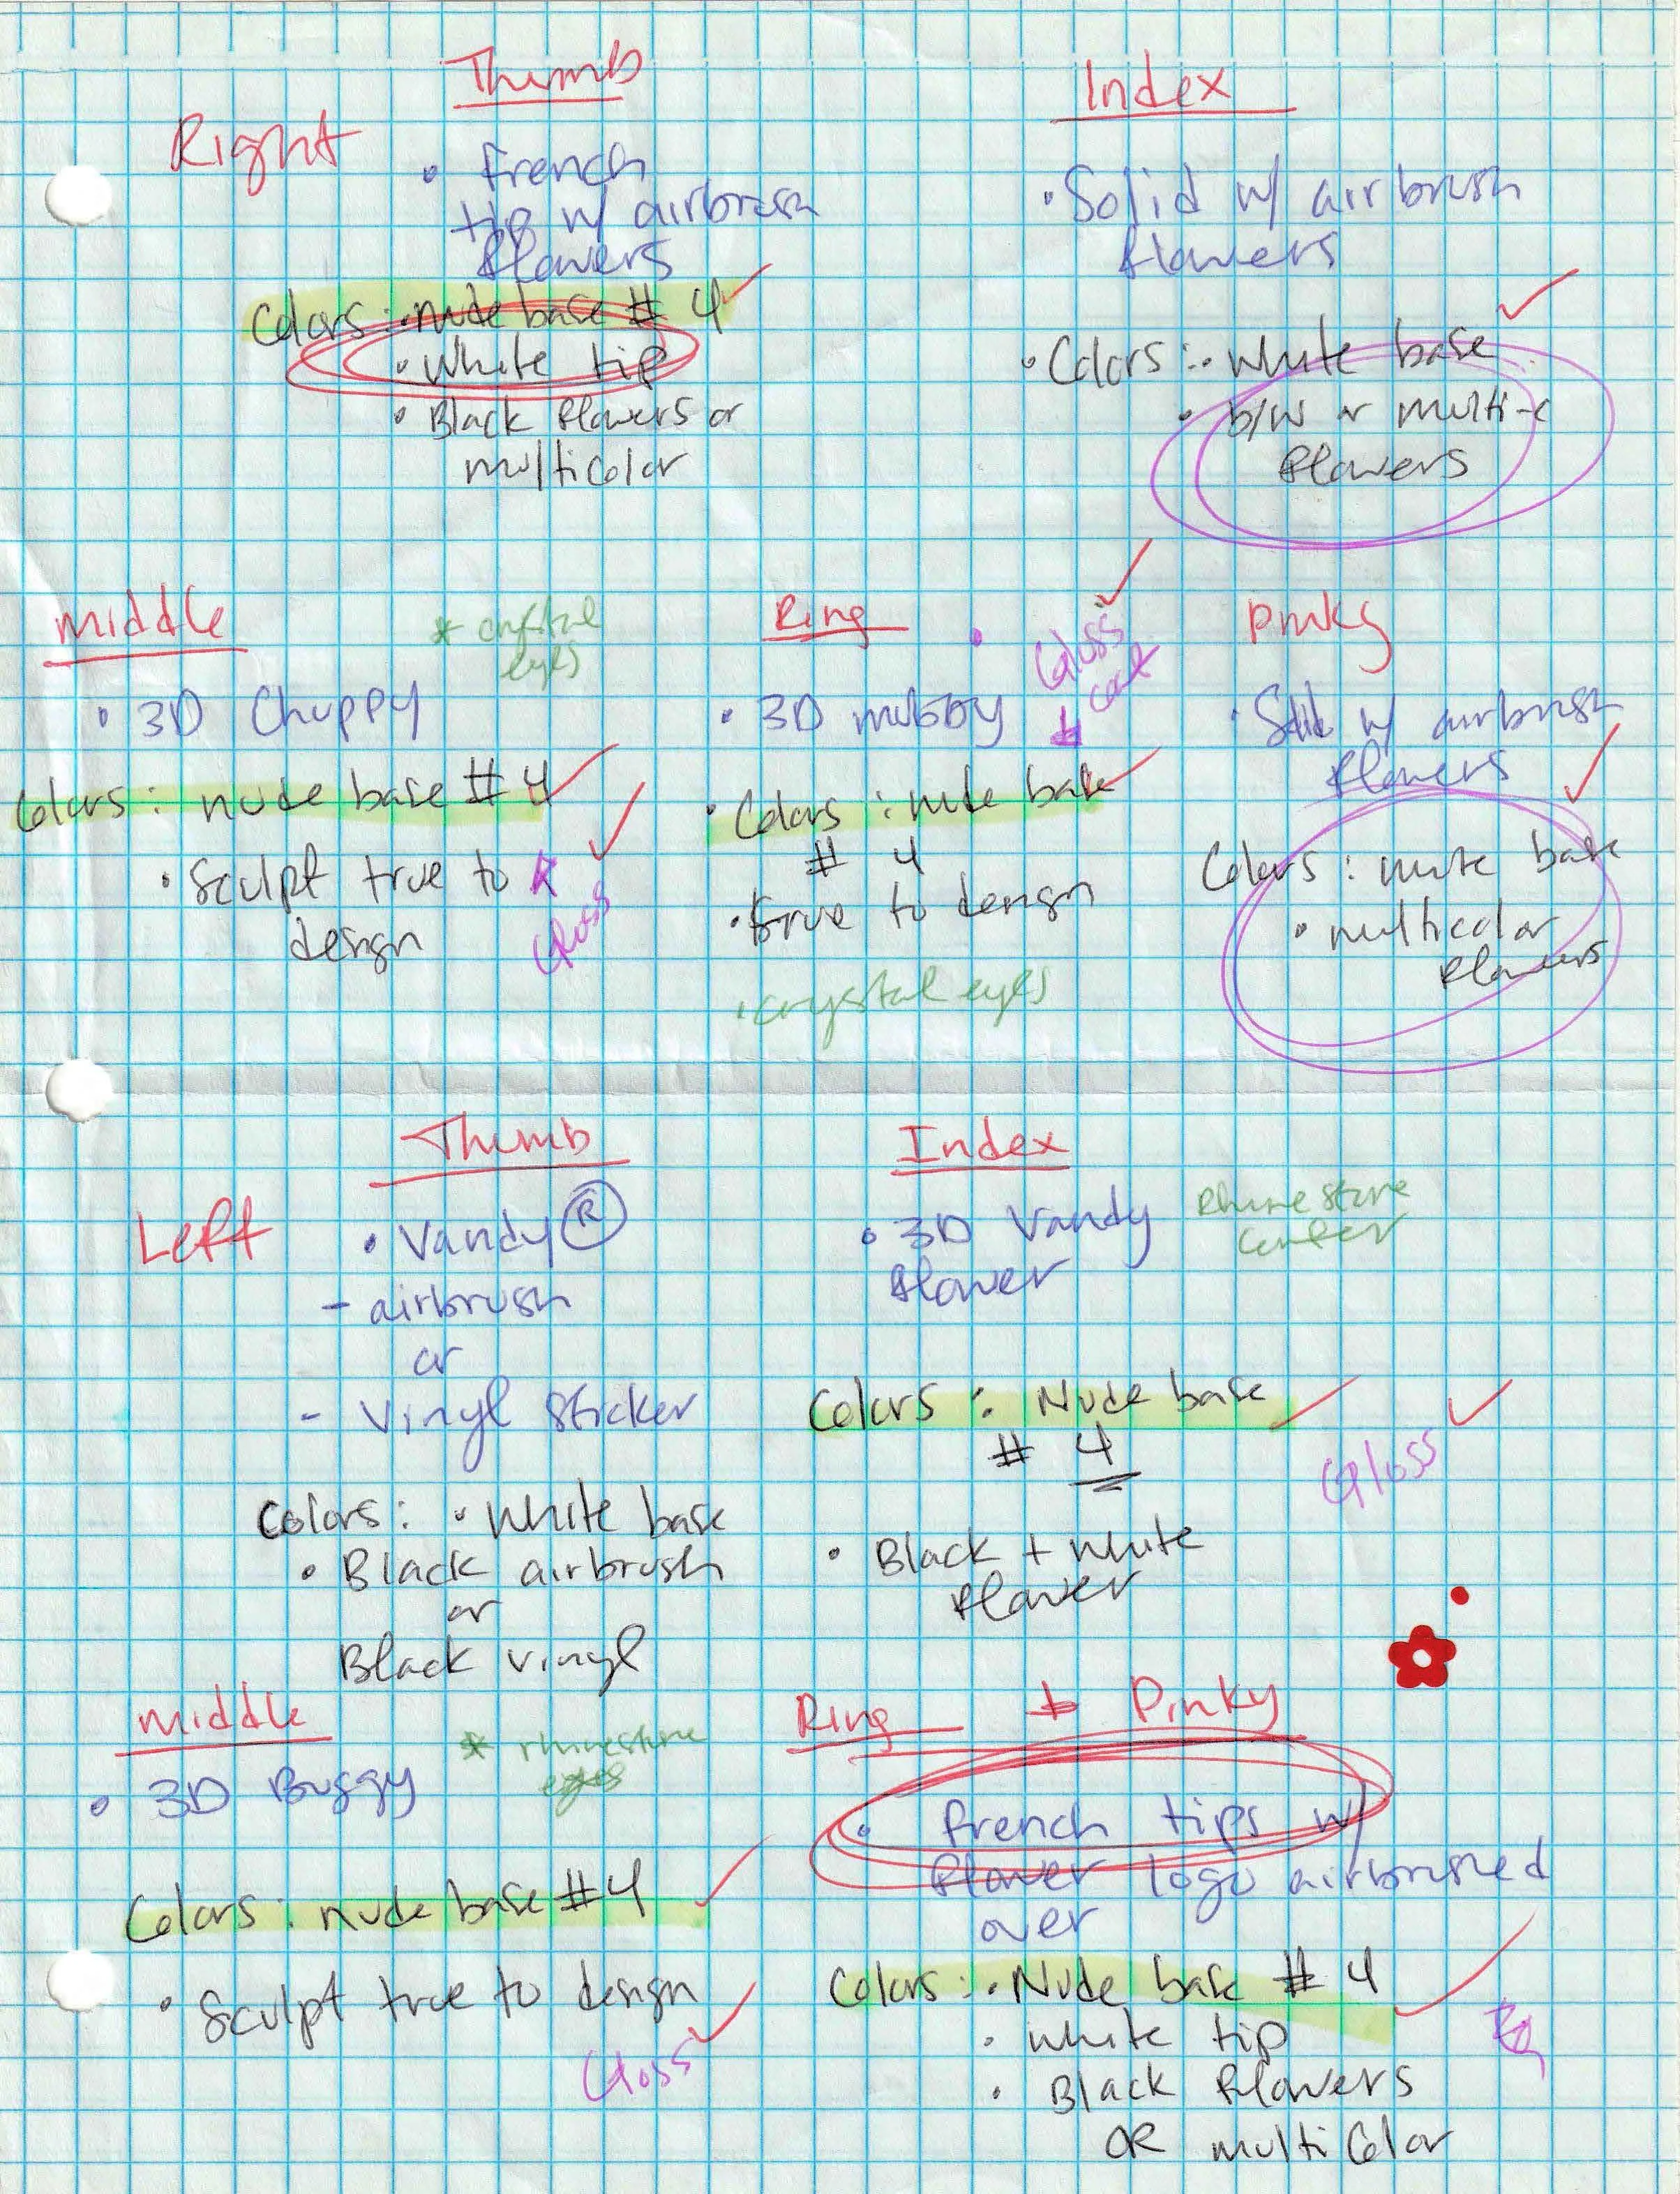 Thumb
Right
• French
tip w/ airbrush
flowers
Colors: • nude base # 4
• White tip
• Black flowers or
multicolor
Index
• Solid w/ airbrush
flowers
• Colors: • White base
• b/w or multi-c
flowers
Middle
* crystal
eyes
• 3D Chuppy
Colors: nude base # 4
• Sculpt true to
design
Gloss
Ring
Gloss
coat
• 3D
• Colors: nude base
# 4
• true to design
• crystal eyes
Pinky
• Solid w/ airbrush
flowers
Colors: white base
• multicolor
flowers
Thumb
Left
• Vandy ®
- airbrush
or
- Vinyl Sticker
Colors: • White base
• Black airbrush
or
Black vinyl
Index
• 3D Vandy
flower
Rhinestone
center
Colors: Nude base
# 4
Gloss
• Black + white
flower
Middle
* rhinestone
eyes
• 3D Buggy
Colors: nude base #4
• Sculpt true to design
Gloss
Ring + Pinky
• french tips w/
flower logo airbrushed
over
Colors: • Nude base # 4
• white tip
• Black flowers
OR multicolor